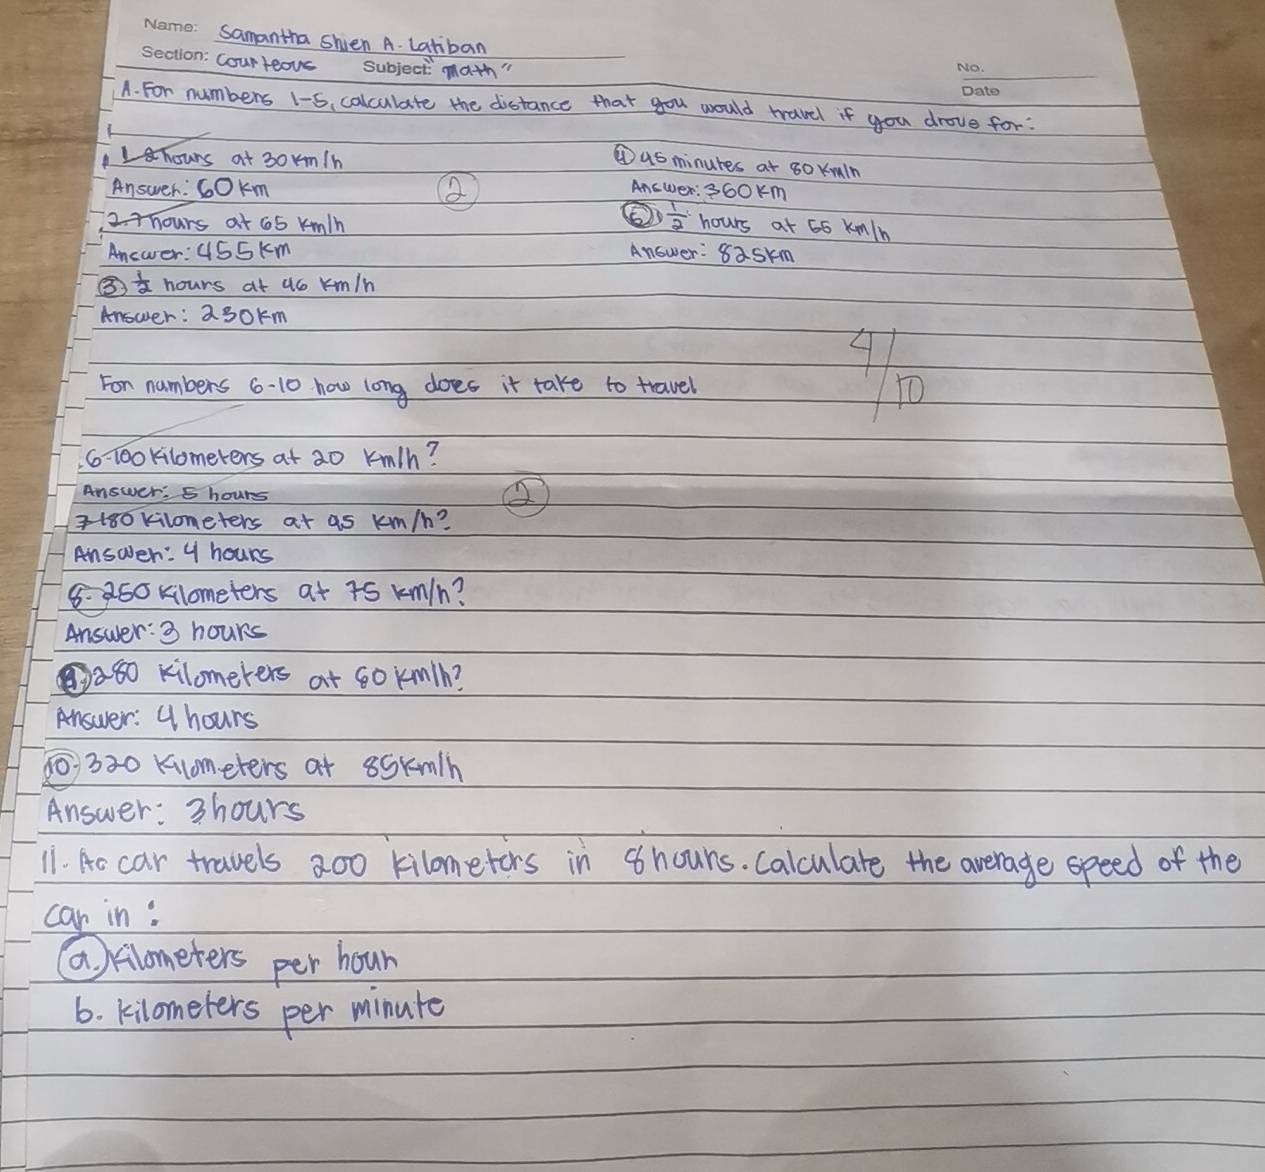 Name: Samantha Shien A. Latiban
Section: Courteous Subject: "Math"
No.
Date
A. For numbers 1-5, calculate the distance that you would travel if you drove for:
1. 2 hours at 30 km/h
Answer: 60 km
2. 7 hours at 65 km/h
Answer: 455 km
③ 1/2 hours at 46 km/h
Answer: 230 km
②
④ 45 minutes at 80 km/h
Answer: 360 km
⑤ 1/2 hours at 55 km/h
Answer: 825 km
4/10
For numbers 6-10 how long does it take to travel
6-100 kilometers at 20 km/h?
Answer: 5 hours
②
7-180 kilometers at 95 km/h?
Answer: 4 hours
8-250 kilometers at 75 km/h?
Answer: 3 hours
9. 280 kilometers at 60 km/h?
Answer: 4 hours
10. 320 kilometers at 85 km/h
Answer: 3 hours
11. Ac car travels 200 kilometers in 8 hours. Calculate the average speed of the
car in:
a. Kilometers per hour
b. kilometers per minute